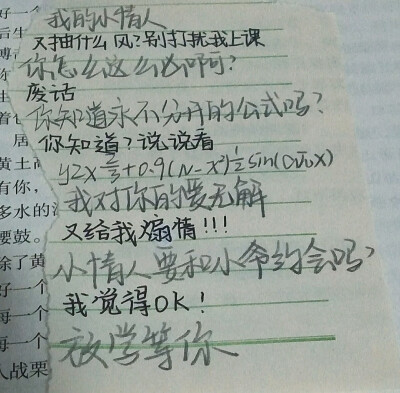 我的小情人
又抽什么风?别打扰我上课
你怎么这么凶啊?
废话
你知道永不分开的公式吗?
你知道?说说看
我对你的爱无解
又给我煽情!!!
小情人要和小爷约会吗?
我觉得OK!
放学等你
好一个
黄土高
有你,
多水的
腰鼓。
除了黄
好一个
每一个
每一个
人战栗